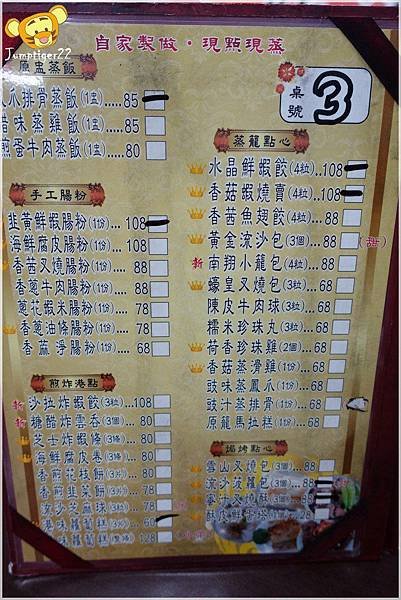 Jumptiger22
自家製做·現點現蒸
原盅蒸飯
爪排骨蒸飯(1盅).....85
腊味蒸雞飯(1盅).....85
煎蛋牛肉蒸飯(1盅).....80
手工腸粉
韭黃鮮蝦腸粉(1份)...108
海鮮腐皮腸粉(1份)... 98
香茜叉燒腸粉(1份)... 88
香蔥牛肉腸粉(1份)... 88
蔥花蝦米腸粉(1份)... 78
香蔥油條腸粉(1份)... 78
香蔴淨腸粉(1份).... 68
煎炸港點
新 沙拉炸蝦餃(3粒)...108
新 糖醋炸雲吞(3個)... 80
芝士炸蝦條(3條)... 80
海鮮腐皮卷(3條)... 80
香煎花枝餅(3片)... 80
香煎韭菜餅(3片)... 80
流沙芝麻球(3粒)... 78
港味蘿蔔糕(3片)... 60
味蘿蔔糕(整條) 128
桌號
3
蒸籠點心
水晶鮮蝦餃(4粒)..108
香菇蝦燒賣(4粒)..108
香茜魚翅餃(4粒).. 88
黃金流沙包(3個).. 88
新 南翔小籠包(4粒).. 88
蠔皇叉燒包(3粒).. 78
陳皮牛肉球(3粒).. 68
糯米珍珠丸(3粒).. 68
荷香珍珠雞(2個).. 68
香菇蒸滑雞(1份).. 68
豉味蒸鳳爪(1份).. 68
豉汁蒸排骨(1份).. 68
原籠馬拉糕(1份).. 68
焗烤點心
雪山叉燒包(3個).. 88
流沙菠蘿包(3個).. 88
蜜汁叉燒酥(3個)
酥皮鮮